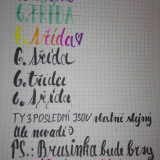 6. TŘÍDA
6. třída
6. třída
6. třída
6. třída
TY 3 POSLEDNÍ JSOU vlastně stejný
Ale nevadí
P.S.: Brusinka bude brzy